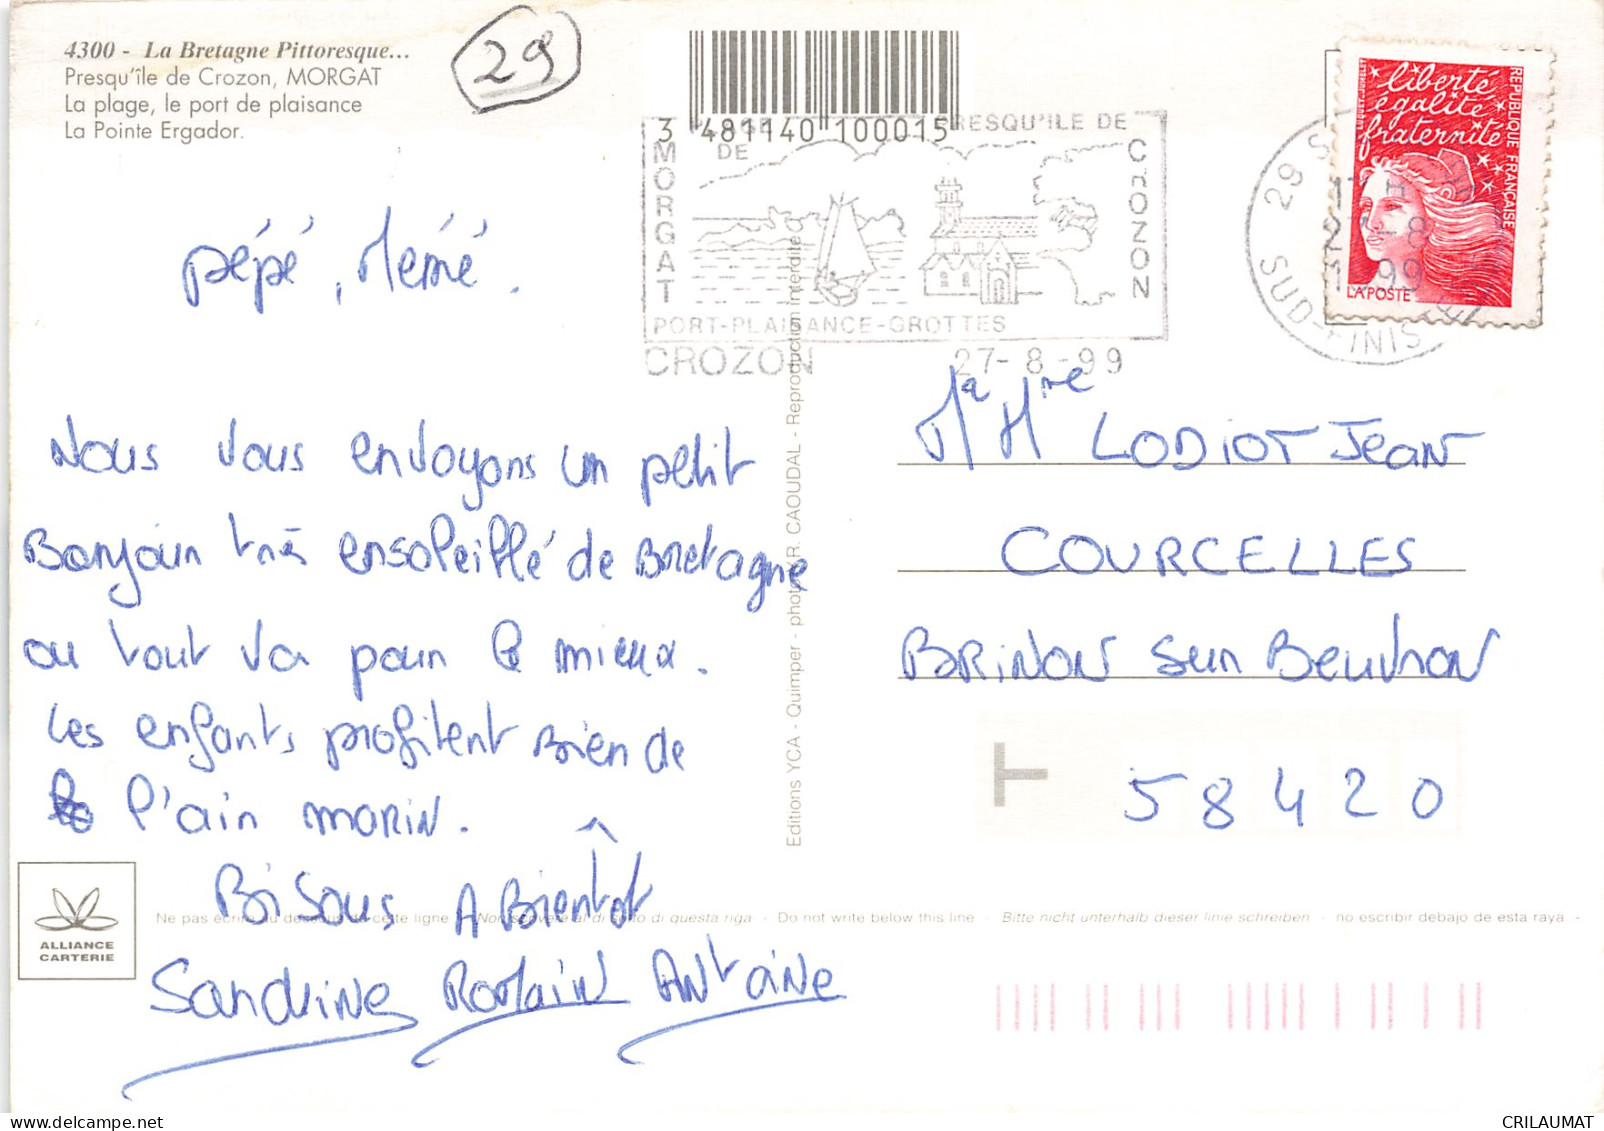 4300 - La Bretagne Pittoresque...
Presqu'île de Crozon, MORGAT
La plage, le port de plaisance
La Pointe Ergador.
29
3 481140 100015
PRESQU'ILE DE
DE
MORGAT
CROZON
PORT-PLAISANCE-GROTTES
CROZON 27-8-99
liberté
égalité
fraternité
RÉPUBLIQUE FRANÇAISE
LA POSTE
29
SUD-FINIS
1999
pépé, Mémé.
Nous vous envoyons un petit
Bonjour très ensoleillé de Bretagne
ou tout va pour le mieux.
Les enfants profitent Bien de
l'air marin.
Bisous A Bientôt
Sandrine Romain Antoine
Mr Mme LODIOT Jean
COURCELLES
BRINON sur Beuvron
T 58420
Editions YCA - Quimper - photo R. CAOUDAL - Reproduction interdite
ALLIANCE
CARTERIE
Ne pas écrire au dessous de cette ligne - Non scrivere al di sotto di questa riga - Do not write below this line - Bitte nicht unterhalb dieser linie schreiben - no escribir debajo de esta raya -
CRILAUMAT